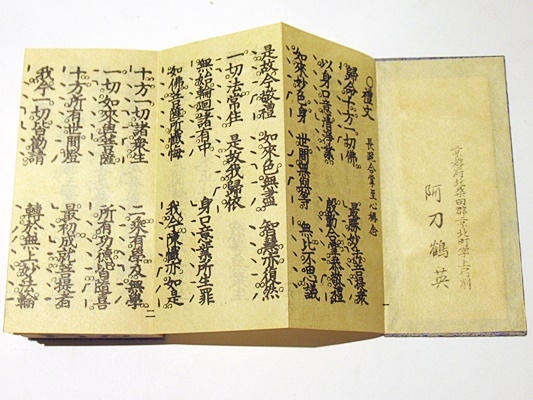 京都府北桑田郡京北町字上弓削
阿刀鶴英
〇禮文　長跪合掌至心稱念
歸命十方一切佛　最勝妙法菩提衆
以身口意清淨業　慇懃合掌恭敬禮
如來妙色身　世間無與等　無比不思議
一
是故今敬禮　如來色無盡　智慧亦復然
一切法常住　是故我歸依
無始輪廻諸有中　身口意業所生罪
如佛菩薩所懺悔　我今陳懺亦如是
十方一切諸衆生　二乘有學及無學
一切如來與菩薩　所有功德皆隨喜
十方所有世間燈　最初成就菩提者
我今一切皆勸請　轉於無上妙法輪
二